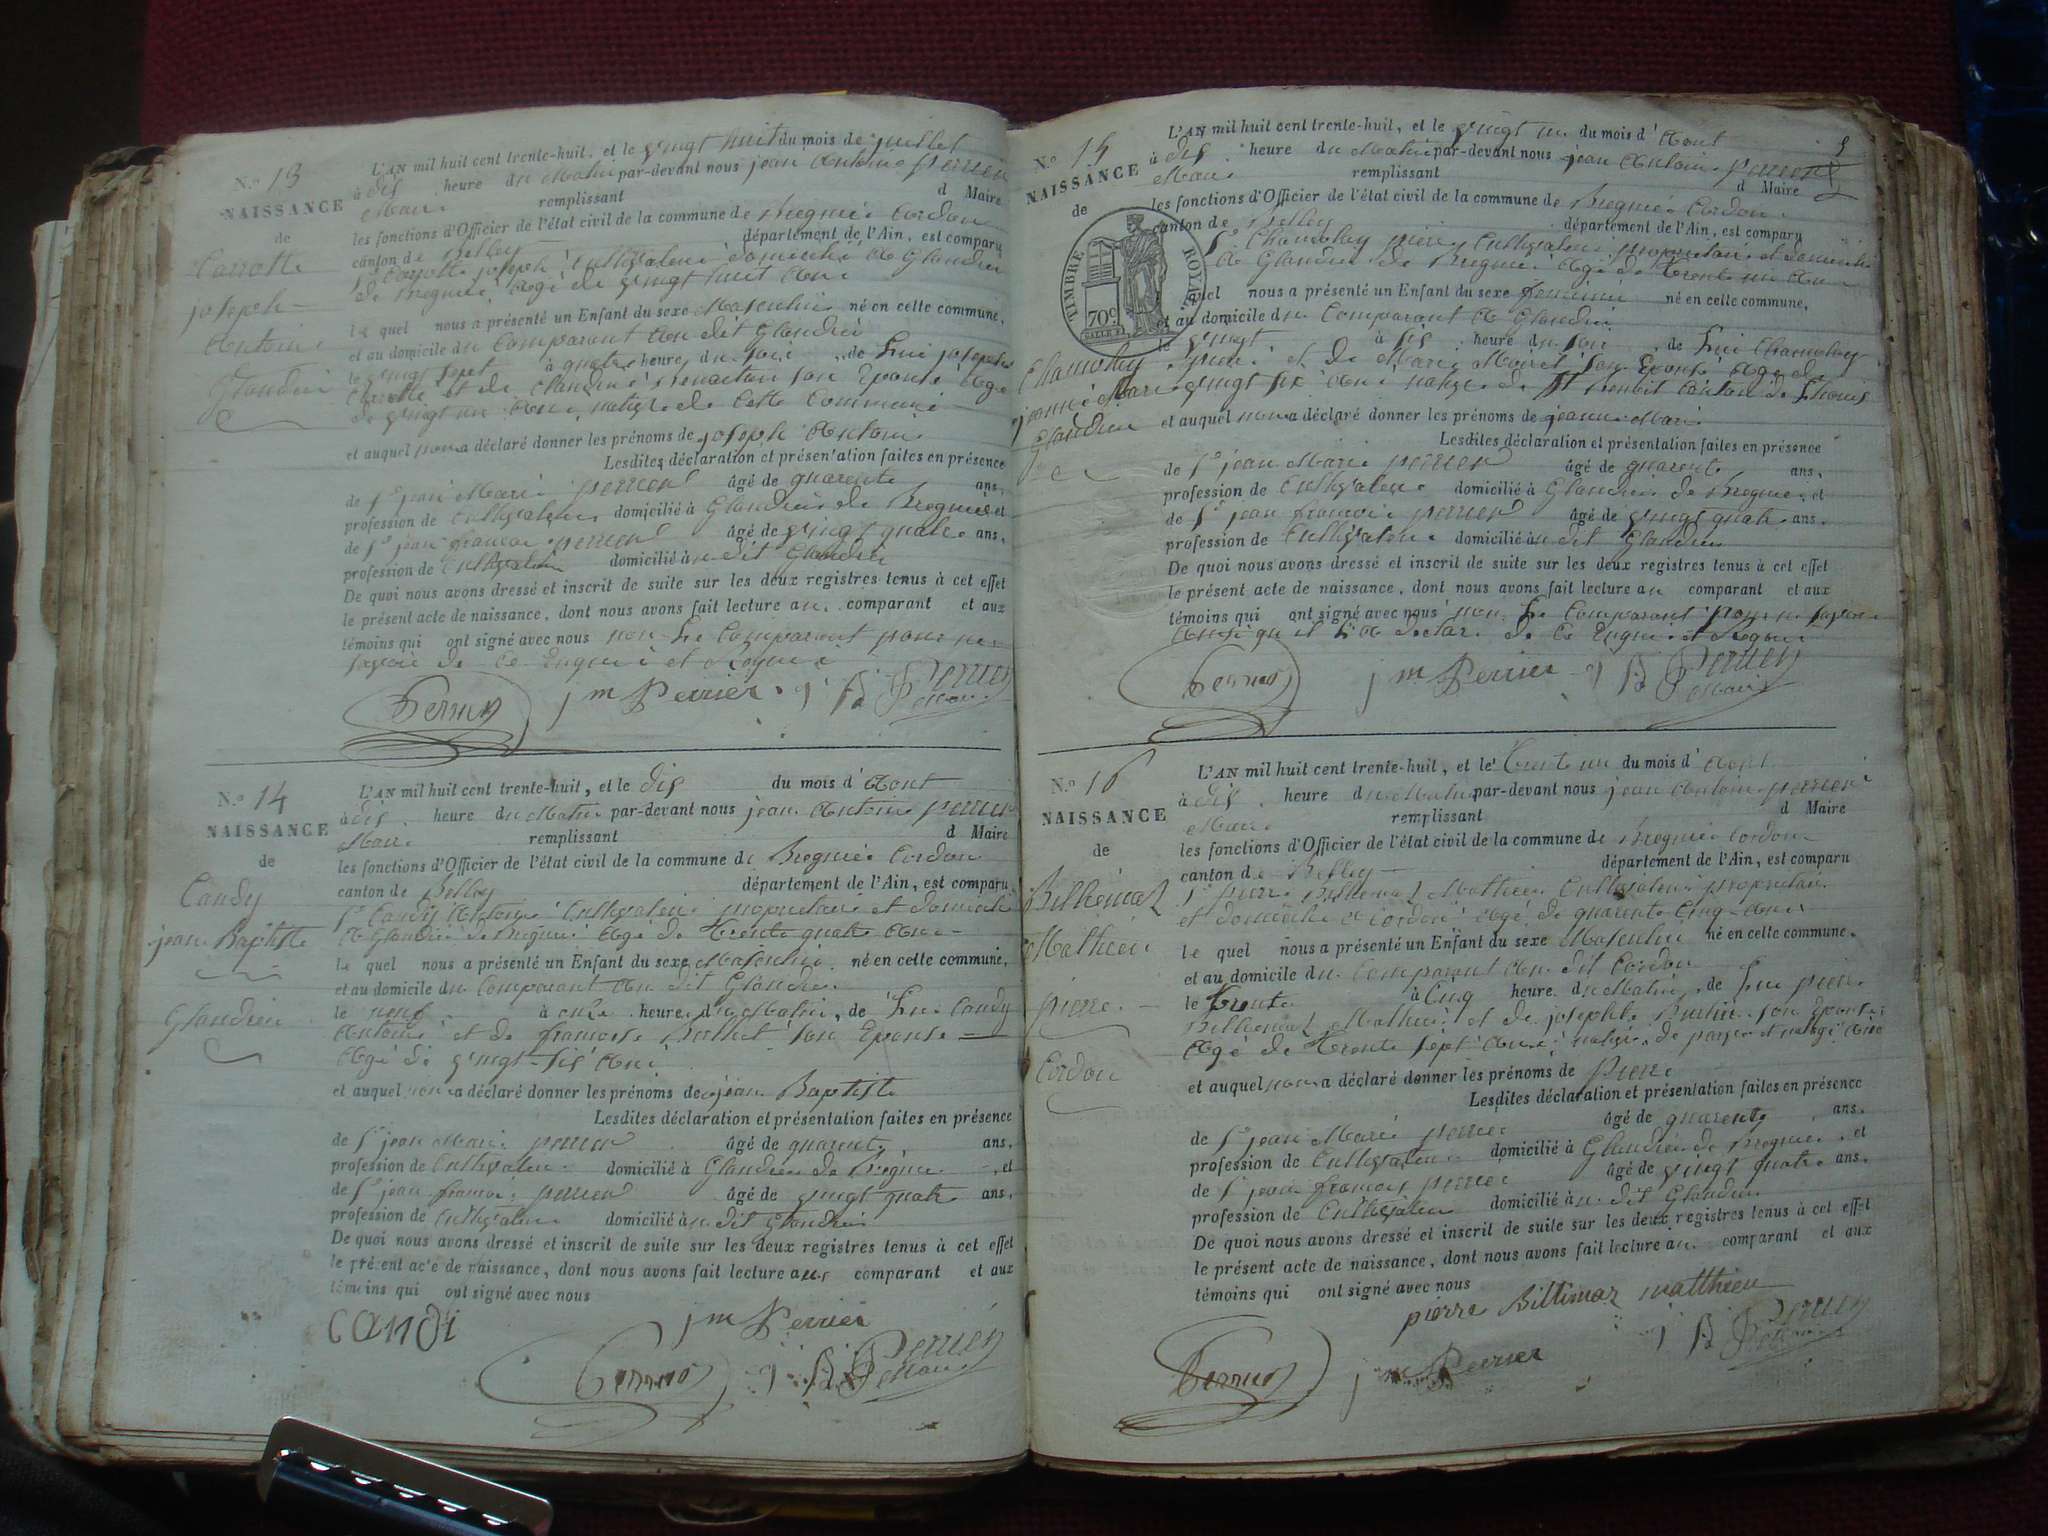 N.º 13
NAISSANCE
de
Carrotte
joseph
Antoine
Glandieu
L'AN mil huit cent trente-huit, et le vingt huit du mois de juillet
à dis heure du Matin par-devant nous jean Antoine perrier
Maire remplissant d Maire
les fonctions d'Officier de l'état civil de la commune de Bregnié Cordon
canton de Belley département de l'Ain, est comparu
Sr Carrotte joseph Cultivateur domicilié à Glandieu
de Bregnié agé de vingt huit Ans
le quel nous a présenté un Enfant du sexe Masculin né en cette commune,
et au domicile du Comparant au dit Glandieu
le vingt sept à quatre heure du soir de Lui joseph
Carrotte et de Claudine son Epouse Agé
de vingt un Ans native de Cette Commune
et auquel nous a déclaré donner les prénoms de joseph Antoine
Lesdites déclaration et présentation faites en présence
de Sr jean Marie perrier âgé de quarente ans,
profession de Cultivateur domicilié à Glandieu de Bregnié et
de Sr jean francois perrier âgé de vingt quatre ans,
profession de Cultivateur domicilié à u dit Glandieu
De quoi nous avons dressé et inscrit de suite sur les deux registres tenus à cet effet
le présent acte de naissance, dont nous avons fait lecture au comparant et aux
témoins qui ont signé avec nous non Le Comparant pour ne
savoir de Ce Enquis et Requis
jm Perrier
Perrier
Maire
N.º 14
NAISSANCE
de
Candy
jean Baptiste
Glandieu
L'AN mil huit cent trente-huit, et le dis du mois d'Aout
à dis heure du Matin par-devant nous jean Antoine perrier
Maire remplissant d Maire
les fonctions d'Officier de l'état civil de la commune de Bregnié Cordon
canton de Belley département de l'Ain, est comparu
Sr Candy Antoine Cultivateur proprietaire et domicilié
à Glandieu de Bregnié Agé de Trente quatre Ans
le quel nous a présenté un Enfant du sexe Masculin né en cette commune,
et au domicile du Comparant Au dit Glandieu
le neuf à onze heure du Matin, de Lui Candy
Antoine et de francoise son Epouse
Agé de vingt-sis Ans
et auquel nous a déclaré donner les prénoms de jean Baptiste
Lesdites déclaration et présentation faites en présence
de Sr jean Marie perrier âgé de quarente ans,
profession de Cultivateur domicilié à Glandieu de Bregnié, et
de Sr jean francois perrier âgé de vingt quatre ans,
profession de Cultivateur domicilié à u dit Glandieu
De quoi nous avons dressé et inscrit de suite sur les deux registres tenus à cet effet
le présent acte de naissance, dont nous avons fait lecture aux comparant et aux
témoins qui ont signé avec nous
candi
jm Perrier
Perrier
Maire
N.º 15
NAISSANCE
de
TIMBRE ROYAL
70c
jeanne Marie
Glandieu
L'AN mil huit cent trente-huit, et le vingt un du mois d'Aout
à dis heure du Matin par-devant nous jean Antoine perrier
Maire remplissant d Maire
les fonctions d'Officier de l'état civil de la commune de Bregnié Cordon
canton de Belley département de l'Ain, est comparu
Sr pierre Cultivateur proprietaire et domicilié
à Glandieu de Bregnié Agé de Trente un Ans
le quel nous a présenté un Enfant du sexe feminin né en cette commune,
et au domicile du Comparant à Glandieu
le vingt à sis heure du soir de Lui
pierre et de Marie son Epouse Agé de
vingt six Ans native de St benoit Canton de Lhuis
et auquel nous a déclaré donner les prénoms de jeanne Marie
Lesdites déclaration et présentation faites en présence
de Sr jean Marie perrier âgé de quarente ans,
profession de Cultivateur domicilié à Glandieu de Bregnié, et
de Sr jean francois perrier âgé de vingt quatre ans.
profession de Cultivateur domicilié à u dit Glandieu
De quoi nous avons dressé et inscrit de suite sur les deux registres tenus à cet effet
le présent acte de naissance, dont nous avons fait lecture au comparant et aux
témoins qui ont signé avec nous non Le Comparant pour ne savoir
Ainsi qu il L a Declaré de Ce Enquis et Requis
jm Perrier
Perrier
Maire
N.º 16
NAISSANCE
de
Billiemaz
Mathieu
pierre
Cordon
L'AN mil huit cent trente-huit, et le Trente un du mois d'Aout
à dis heure du Matin par-devant nous jean Antoine perrier
Maire remplissant d Maire
les fonctions d'Officier de l'état civil de la commune de Bregnié Cordon
canton de Belley département de l'Ain, est comparu
Sr pierre Billiemaz Mathieu Cultivateur proprietaire
et domicilié à Cordon Agé de quarente Cinq Ans
le quel nous a présenté un Enfant du sexe Masculin né en cette commune.
et au domicile du Comparant Au dit Cordon
le Trente à Cinq heure du Matin de Lui pierre
Billiemaz Mathieu et de josephte son Epouse
Agé de Trente sept Ans native de
et auquel nous a déclaré donner les prénoms de Pierre
Lesdites déclaration et présentation faites en présence
de Sr jean Marie perrier âgé de quarente ans.
profession de Cultivateur domicilié à Glandieu de Bregnié, et
de Sr jean francois perrier âgé de vingt quatre ans.
profession de Cultivateur domicilié à u dit Glandieu
De quoi nous avons dressé et inscrit de suite sur les deux registres tenus à cet effet
le présent acte de naissance, dont nous avons fait lecture au comparant et aux
témoins qui ont signé avec nous
pierre Billimaz matthieu
jm Perrier
Perrier